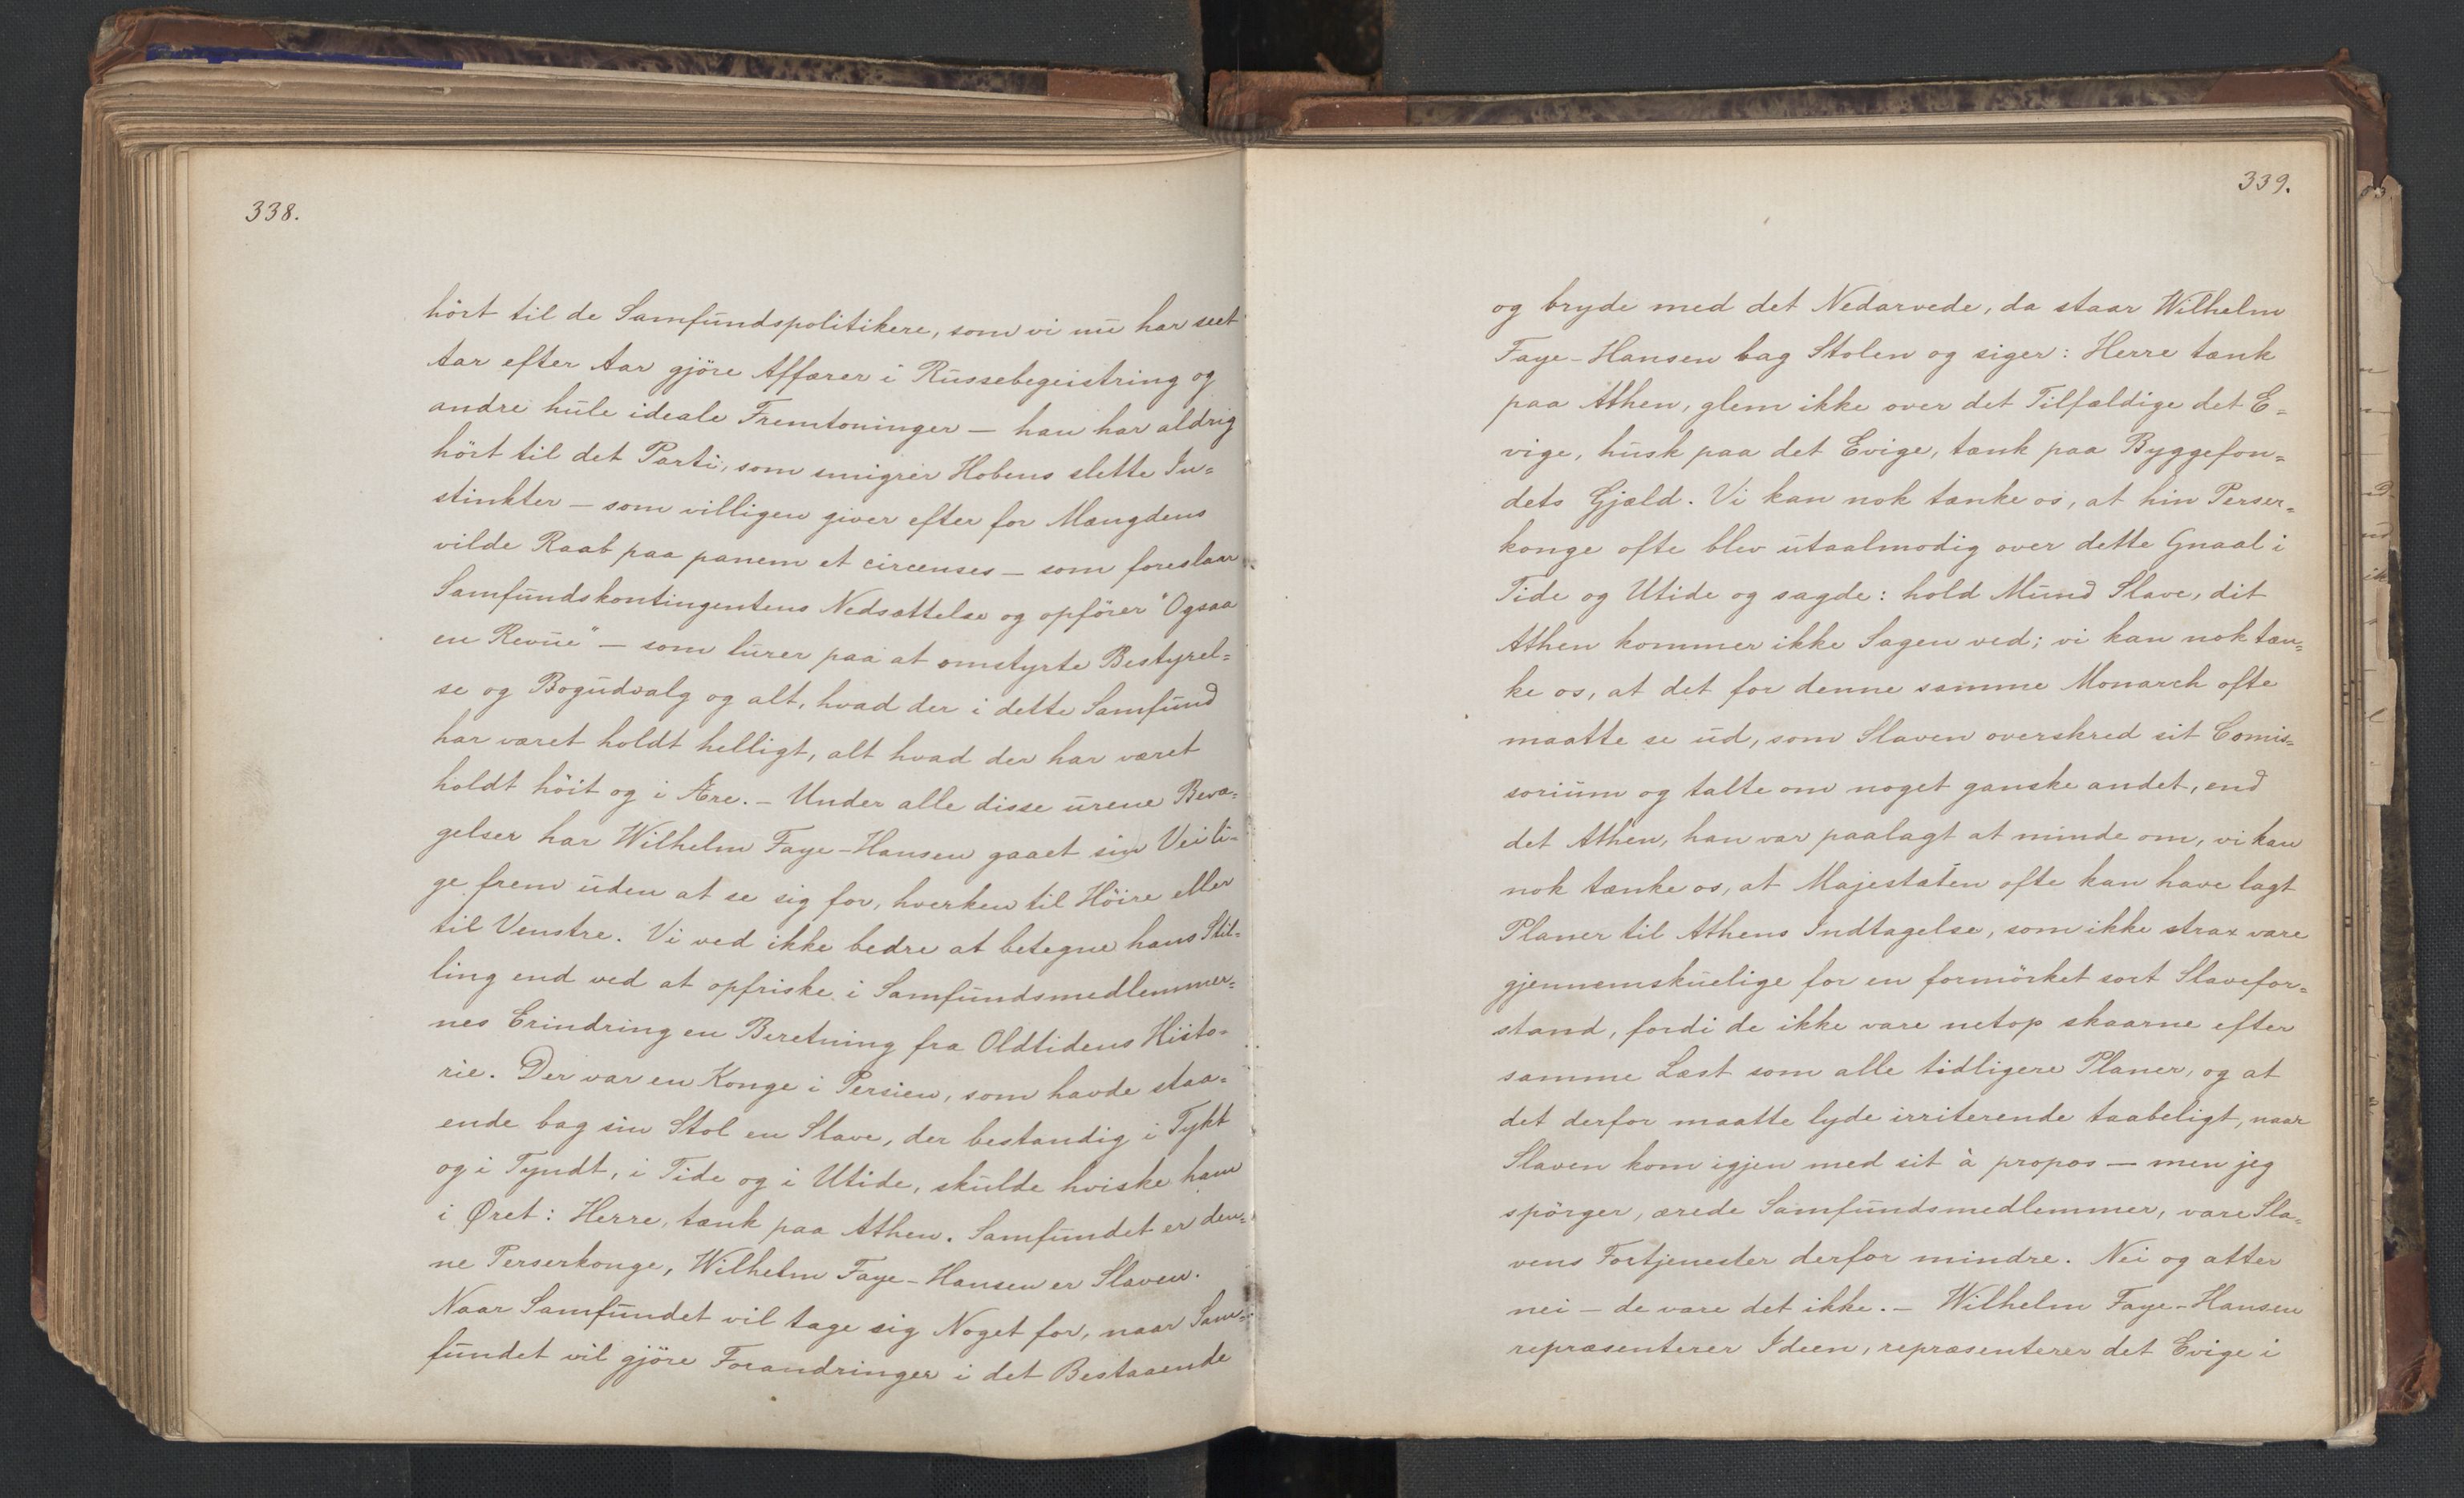 338.
hört til de Samfundspolitikere, som vi nu har seet
Aar efter Aar gjöre Affærer i Russebegeistring og
andre hule ideale Fremtoninger — han har aldrig
hört til det Parti, som smigrer Hobens slette In=
stinkter — som villigen giver efter for Mængdens
vilde Raab paa panem et circenses — som foreslaar
Samfundskontingentens Nedsættelse og opförer "Ogsaa
en Revue" — som lurer paa at omstyrte Bestyrel=
se og Bogudvalg og alt, hvad der i dette Samfund
har været holdt helligt, alt hvad der har været
holdt höit og i Ære. — Under alle disse urene Bevæ=
gelser har Wilhelm Faye-Hansen gaaet sin Vei li=
ge frem uden at se sig for, hverken til Höire eller
til Venstre. Vi ved ikke bedre at betegne hans Stil=
ling end ved at opfriske i Samfundsmedlemmer=
nes Erindring en Beretning fra Oldtidens Histo=
rie. Der var en Konge i Persien, som havde staa=
ende bag sin Stol en Slave, der bestandig i Tykt
og i Tyndt, i Tide og i Utide, skulde hviske ham
i Øret: Herre, tænk paa Athen. Samfundet er den=
ne Perserkonge, Wilhelm Faye-Hansen er Slaven.
Naar Samfundet vil tage sig Noget for, naar Sam=
fundet vil gjöre Forandringer i det Bestaaende
339.
og bryde med det Nedarvede, da staar Wilhelm
Faye-Hansen bag Stolen og siger: Herre tænk
paa Athen, glem ikke over det Tilfældige det E=
vige, husk paa det Evige, tænk paa Byggefon=
dets Gjæld. Vi kan nok tænke os, at hin Perser=
konge ofte blev utaalmodig over dette Gnaal i
Tide og Utide og sagde: hold Mund Slave, dit
Athen kommer ikke Sagen ved; vi kan nok tæn=
ke os, at det for denne samme Monarch ofte
maatte se ud, som Slaven overskred sit Comis=
sorium og talte om noget ganske andet, end
det Athen, han var paalagt at minde om, vi kan
nok tænke os, at Majestæten ofte kan have lagt
Planer til Athens Indtagelse, som ikke strax vare
gjennemskuelige for en formörket sort Slavefor=
stand, fordi de ikke vare netop skaarne efter
samme Læst som alle tidligere Planer, og at
det derfor maatte lyde irriterende taabeligt, naar
Slaven kom igjen med sit à propos — men jeg
spörger, ærede Samfundsmedlemmer, vare Sla=
vens Fortjenester derfor mindre. Nei og atter
nei — de vare det ikke. — Wilhelm Faye-Hansen
repræsenterer Ideen, repræsenterer det Evige i